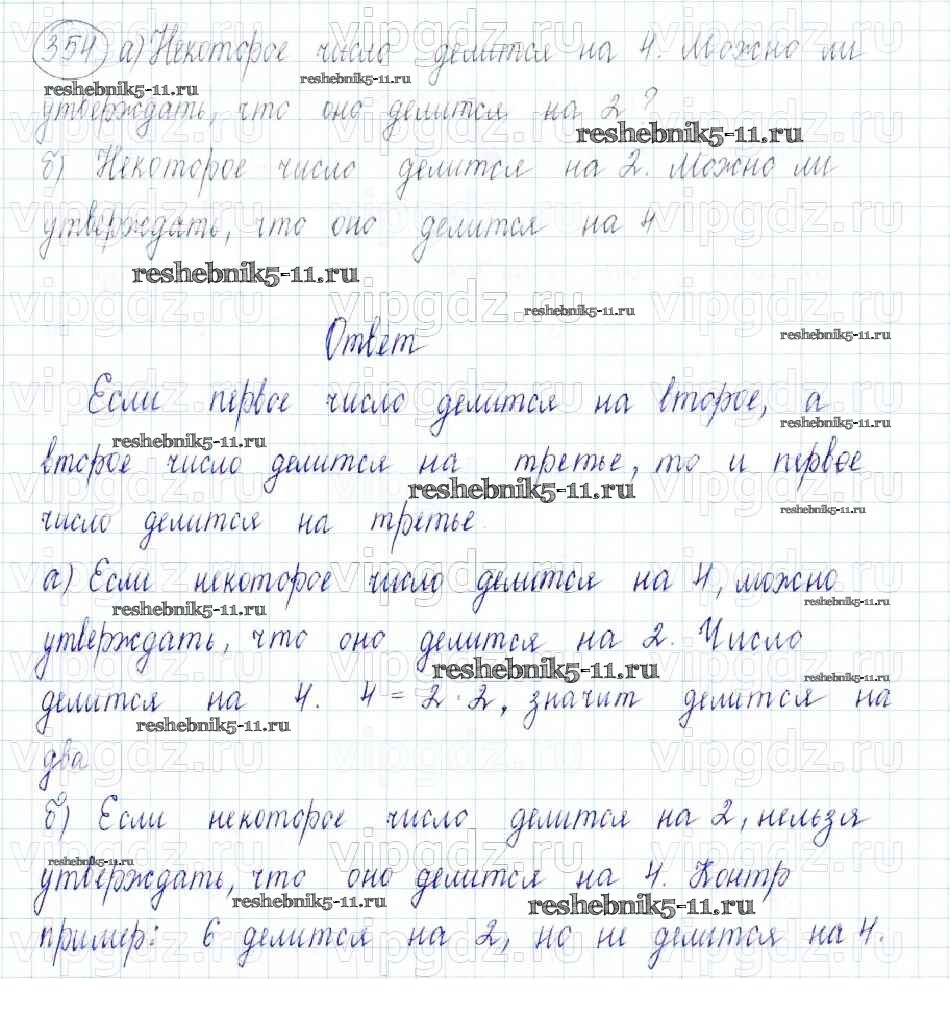 354 а) Некоторое число делится на 4. Можно ли
утверждать, что оно делится на 2?
б) Некоторое число делится на 2. Можно ли
утверждать, что оно делится на 4
Ответ
Если первое число делится на второе, а
второе число делится на третье, то и первое
число делится на третье.
а) Если некоторое число делится на 4, можно
утверждать, что оно делится на 2. Число
делится на 4. 4 = 2 · 2, значит делится на
два
б) Если некоторое число делится на 2, нельзя
утверждать, что оно делится на 4. Контр
пример: 6 делится на 2, но не делится на 4.
reshebnik5-11.ru
vipgdz.ru